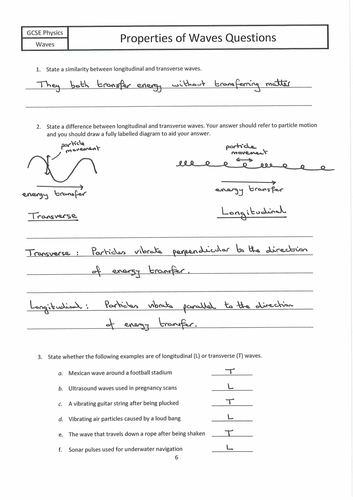 GCSE Physics
Waves
Properties of Waves Questions
1. State a similarity between longitudinal and transverse waves.
They both transfer energy without transferring matter
2. State a difference between longitudinal and transverse waves. Your answer should refer to particle motion
and you should draw a fully labelled diagram to aid your answer.
particle
movement
energy transfer
Transverse
particle
movement
energy transfer
Longitudinal
Transverse : Particles vibrate perpendicular to the direction
of energy transfer.
Longitudinal : Particles vibrate parallel to the direction
of energy transfer.
3. State whether the following examples are of longitudinal (L) or transverse (T) waves.
a. Mexican wave around a football stadium T
b. Ultrasound waves used in pregnancy scans L
c. A vibrating guitar string after being plucked T
d. Vibrating air particles caused by a loud bang L
e. The wave that travels down a rope after being shaken T
f. Sonar pulses used for underwater navigation L
6